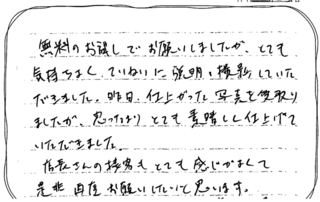 無料のお試しでお願いしましたが、とても
気持ちよく、ていねいに説明、撮影していた
だきました。昨日、仕上がった写真を受取り
ましたが、思ったよりとても素晴しく仕上げて
いただきました。
店長さんの接客もとても感じがよくて
是非再度お願いしたいと思います。